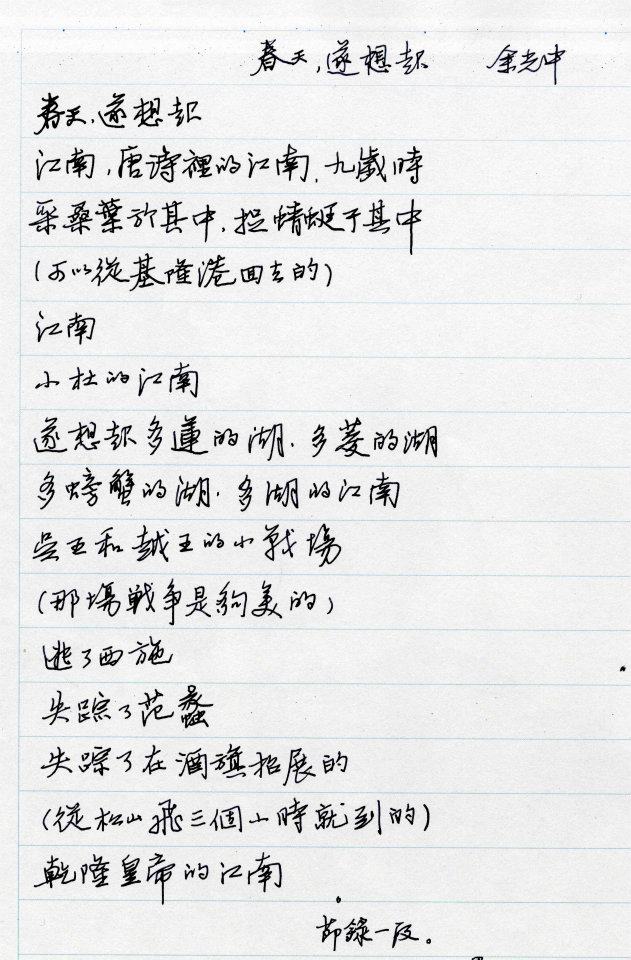 春天,遂想起 余光中
春天,遂想起
江南,唐詩裡的江南,九歲時
采桑葉於其中,捉蜻蜓于其中
(可以從基隆港回去的)
江南
小杜的江南
遂想起多蓮的湖,多菱的湖
多螃蟹的湖,多湖的江南
吳王和越王的小戰場
(那場戰爭是夠美的)
逃了西施
失踪了范蠡
失踪了在酒旗招展的
(從松山飛三個小時就到的)
乾隆皇帝的江南
節錄一段。